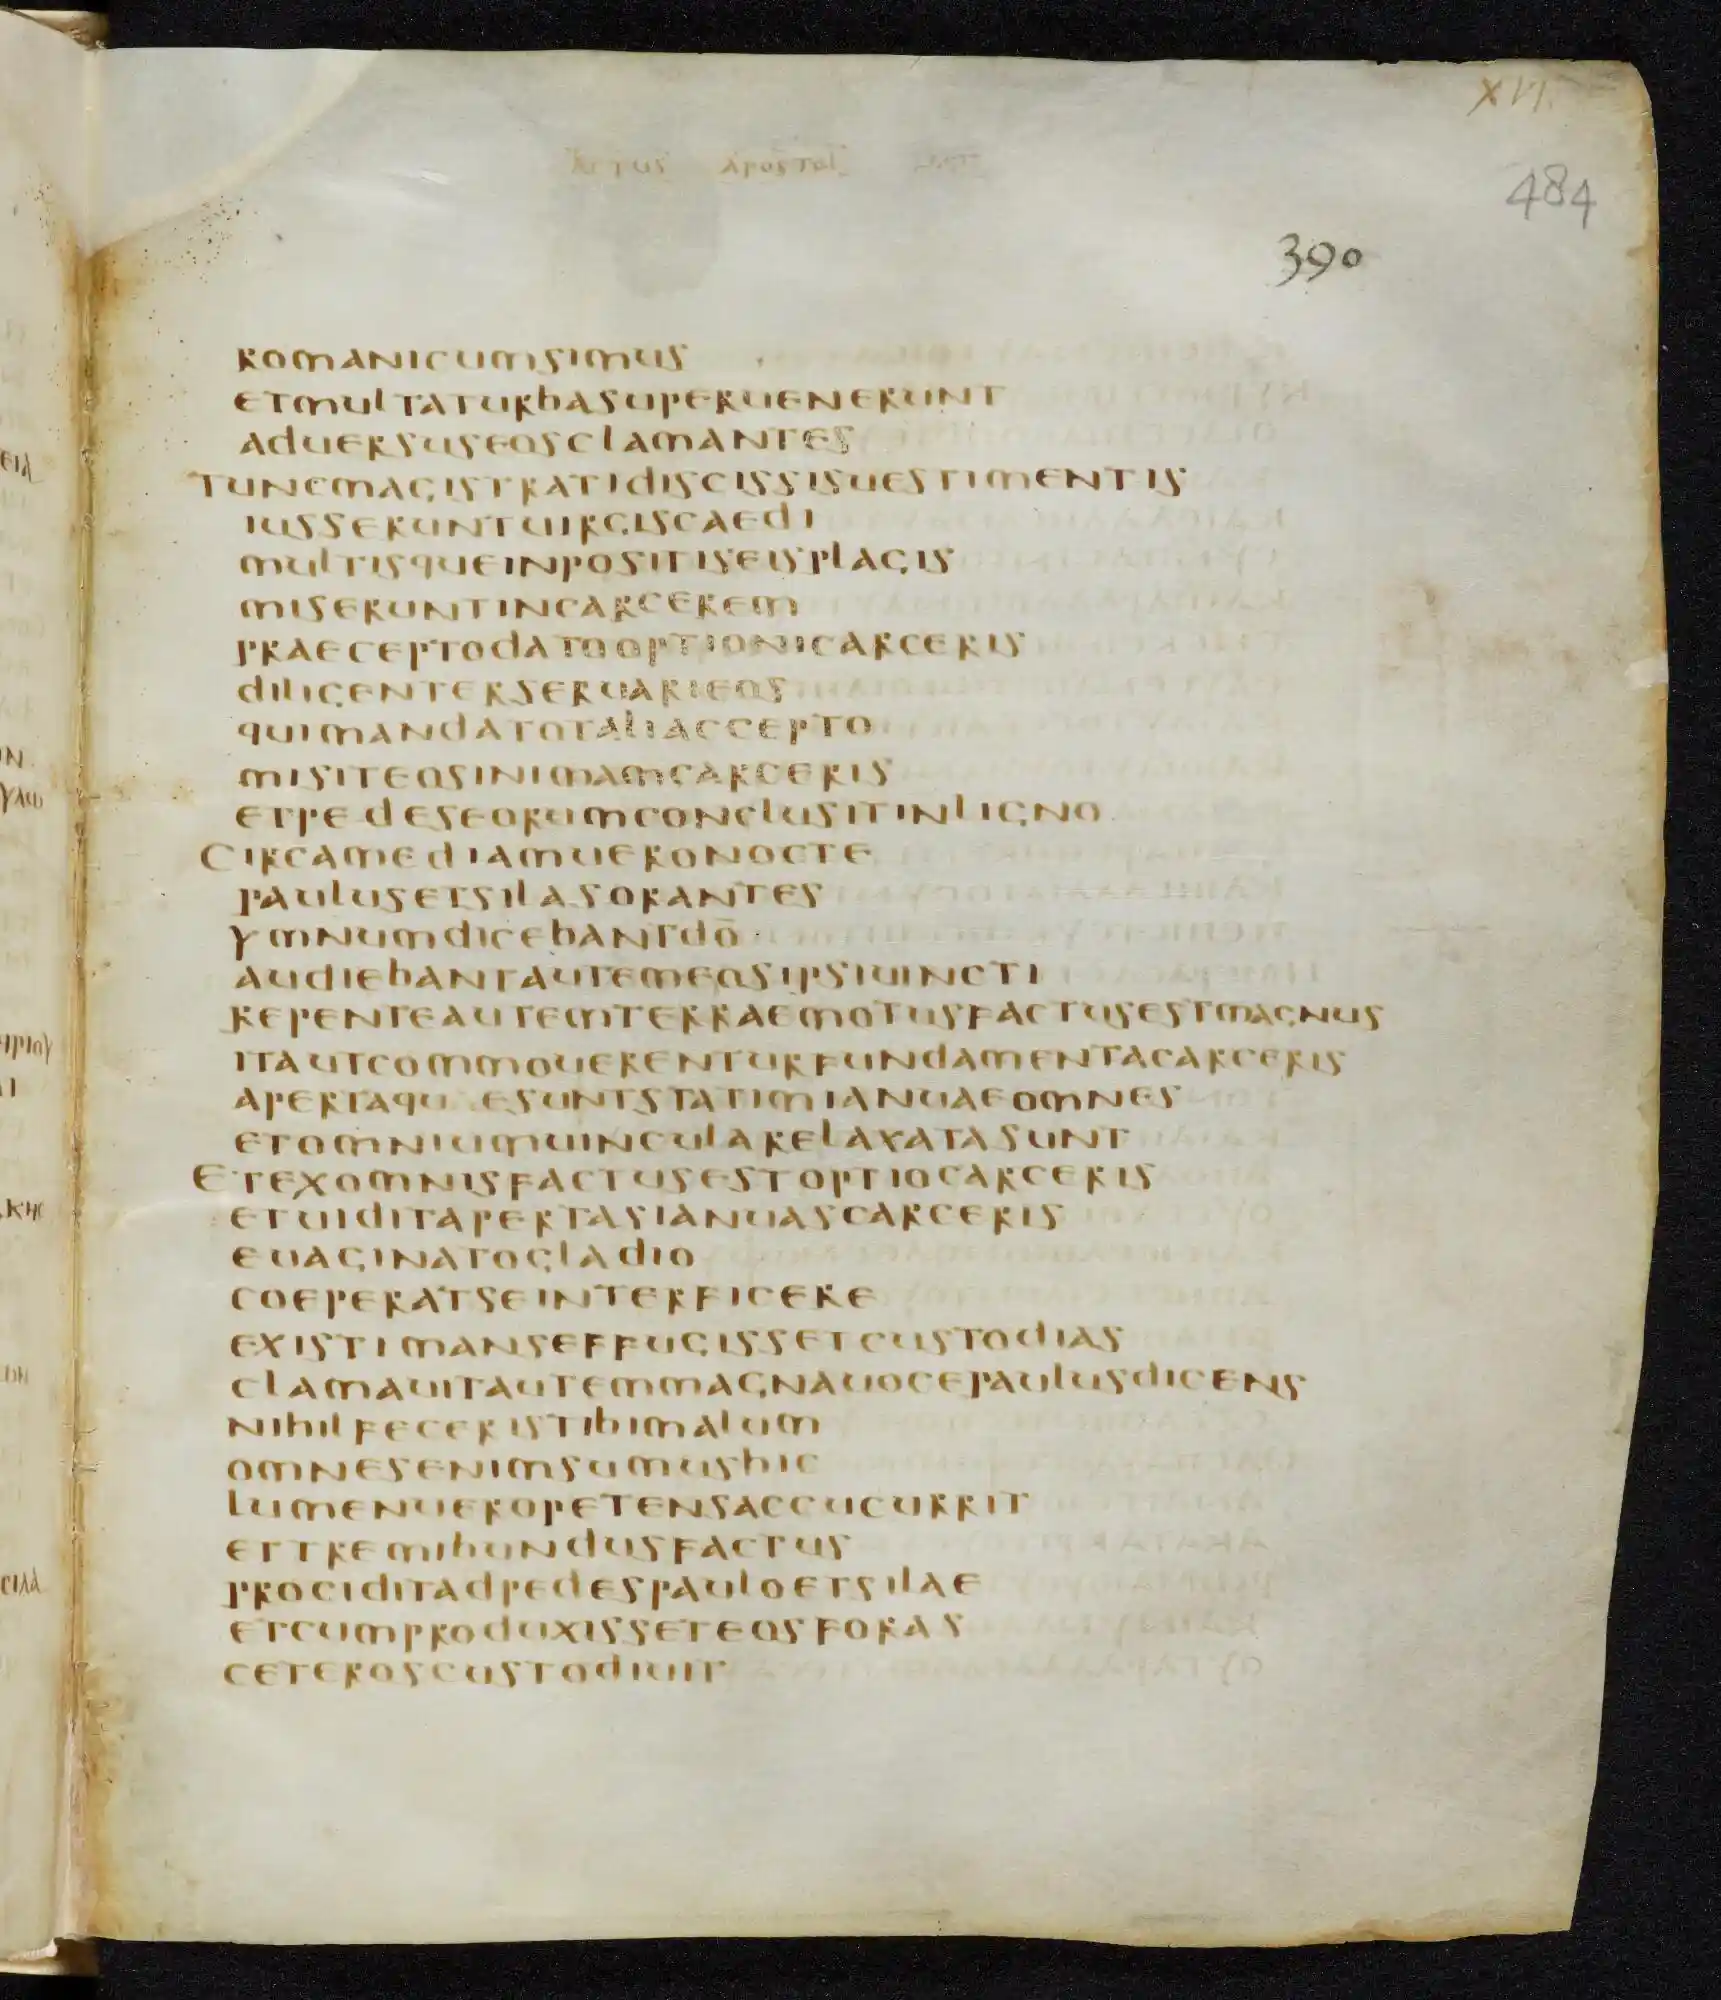 XVI
484
390
APOSTOL
ROMANICUMSIMUS
ETMULTATURBASUPERUENERUNT
ADUERSUSEOSCLAMANTES
TUNCMAGISTRATIDISCISSISUESTIMENTIS
IUSSERUNTUIRGISCAEDI
MULTISQUEINPOSITISEISPLAGIS
MISERUNTINCARCEREM
PRAECEPTODATOOPTIONICARCERIS
DILIGENTERSERUARIEOS
QUIMANDATOTALIACCEPTO
MISITEOSINIMAMCARCERIS
ETPEDESEORUMCONCLUSITINLIGNO
CIRCAMEDIAMUERONOCTE
PAULUSETSILASORANTES
YMNUMDICEBANTDŌ
AUDIEBANTAUTEMEOSIPSIUINCTI
REPENTEAUTEMTERRAEMOTUSFACTUSESTMAGNUS
ITAUTCOMMOUERENTURFUNDAMENTACARCERIS
APERTAQU ESUNTSTATIMIANUAEOMNES
ETOMNIUMUINCULARELAXATASUNT
ETEXOMNISFACTUSESTOPTIOCARCERIS
ETUIDITAPERTASIANUASCARCERIS
EUAGINATOGLADIO
COEPERATSEINTERFICERE
EXISTIMANSEFFUGISSETCUSTODIAS
CLAMAUITAUTEMMAGNAUOCEPAULUSDICENS
NIHILFECERISTIBIMALUM
OMNESENIMSUMUSHIC
LUMENUEROPETENSACCUCURRIT
ETTREMIBUNDUSFACTUS
PROCIDITADPEDESPAULOETSILAE
ETCUMPRODUXISSETEOSFORAS
CETEROSCUSTODIUIT